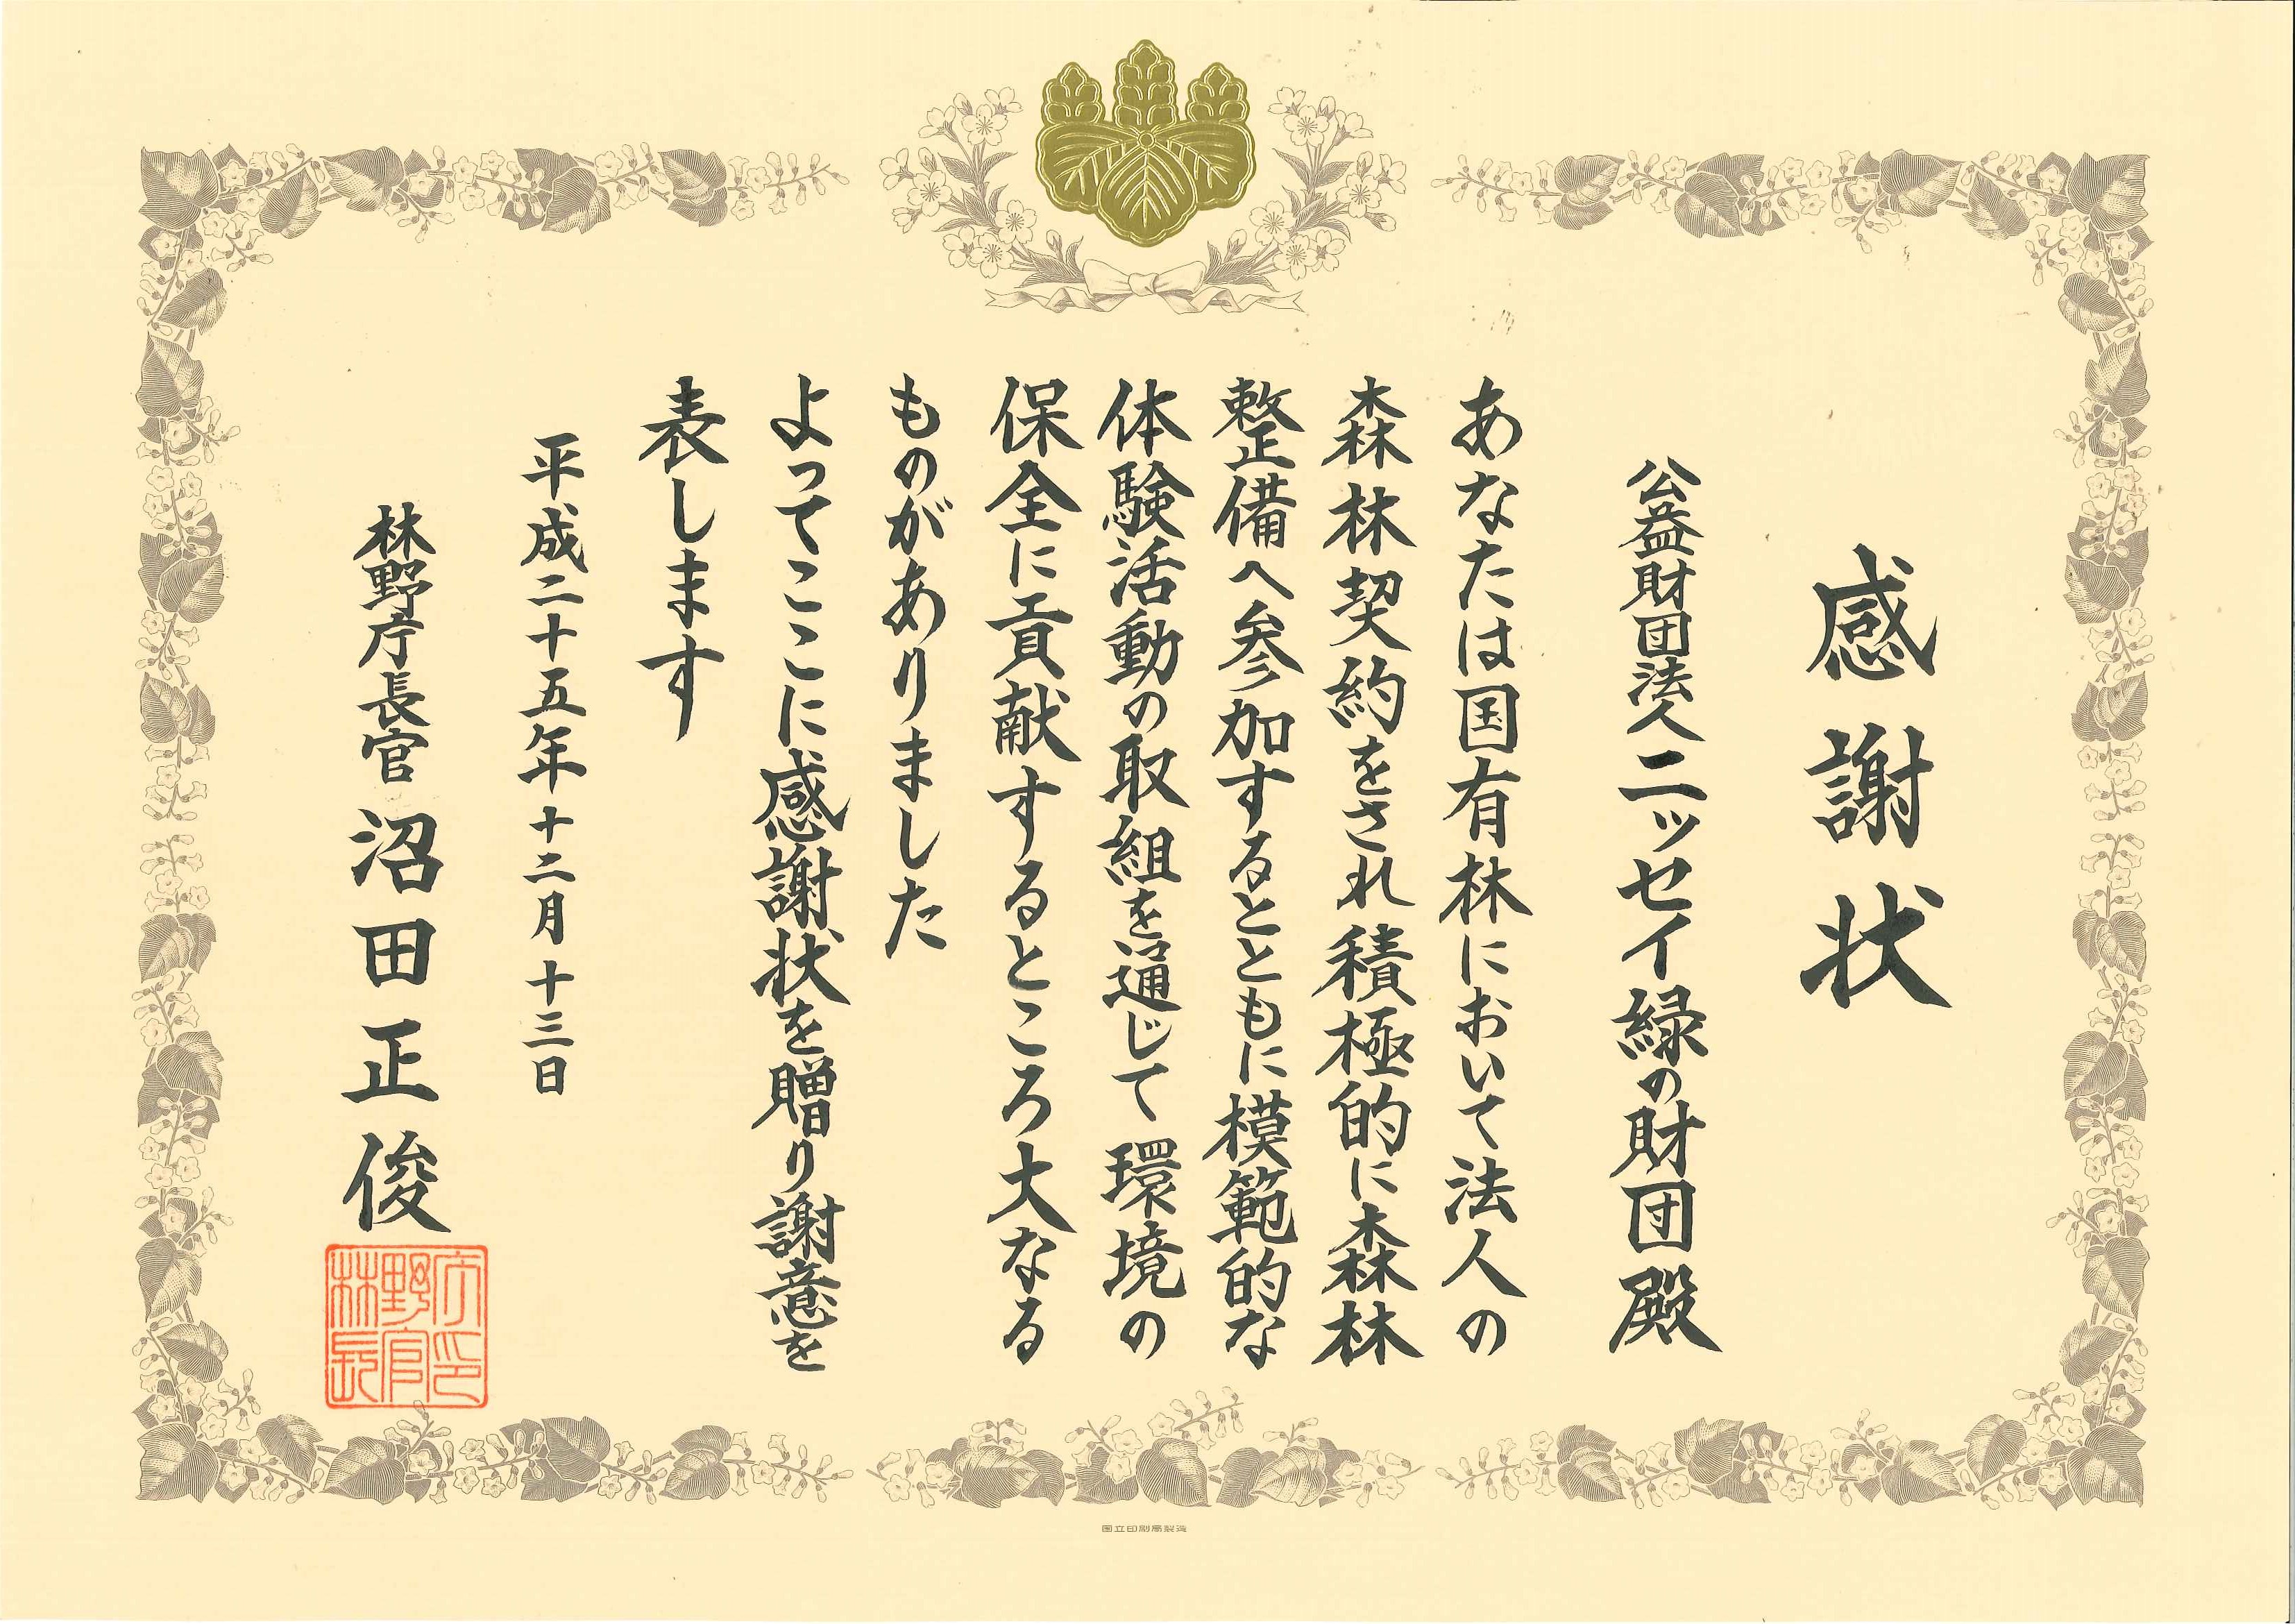 感謝状
公益財団法人ニッセイ緑の財団殿
あなたは国有林において法人の
森林契約をされ積極的に森林
整備へ参加するとともに模範的な
体験活動の取組を通じて環境の
保全に貢献するところ大なる
ものがありました
よってここに感謝状を贈り謝意を
表します
平成二十五年十二月十三日
林野庁長官 沼田正俊
林野庁
長官印
国立印刷局製造